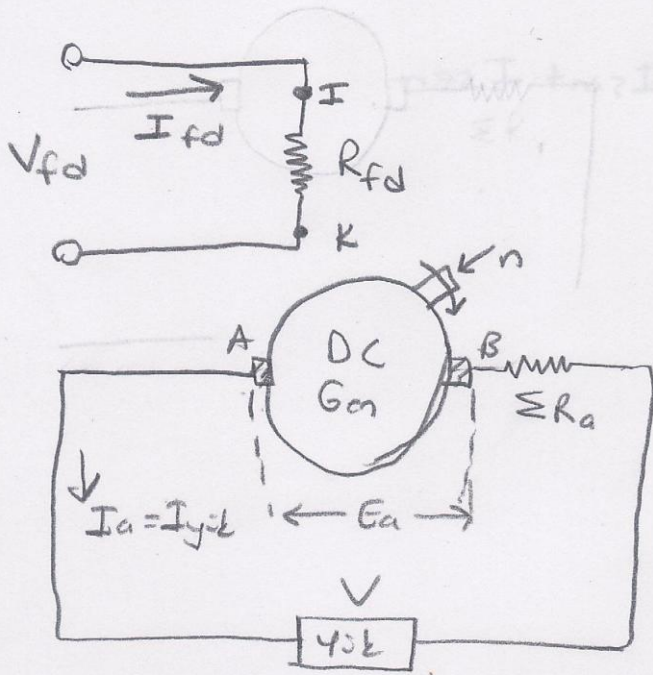 I
I fd
V fd
R fd
K
n
A
DC
B
Gen
ΣRa
Ia = Iyük
Ea
V
yük